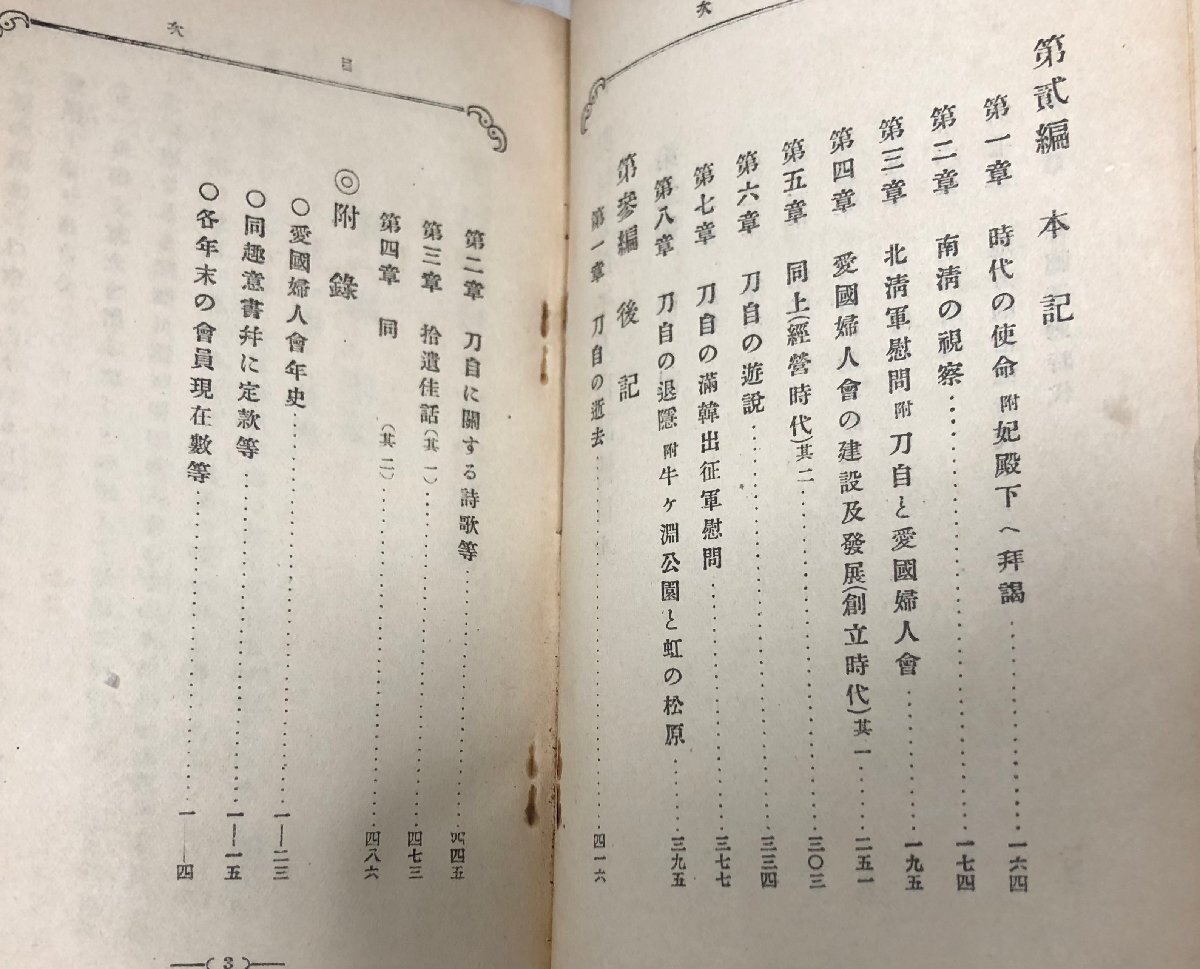 次
第貳編 本記
第一章 時代の使命 附 妃殿下へ拜謁 一六四
第二章 南淸の視察 一七四
第三章 北淸軍慰問 附 刀自と愛國婦人會 一九五
第四章 愛國婦人會の建設及發展(創立時代)其一 二五一
第五章 同上(經營時代)其二 三〇三
第六章 刀自の遊說 三三四
第七章 刀自の滿韓出征軍慰問 三七七
第八章 刀自の退隱 附 牛ケ淵公園と虹の松原 三九五
第參編 後記
第一章 刀自の逝去 四一六
目次
第二章 刀自に關する詩歌等 四四五
第三章 拾遺佳話(其一) 四七三
第四章 同 (其二) 四八六
◎附錄
〇愛國婦人會年史 一—二三
〇同趣意書幷に定款等 一—一五
〇各年末の會員現在數等 一—四
( 3 )